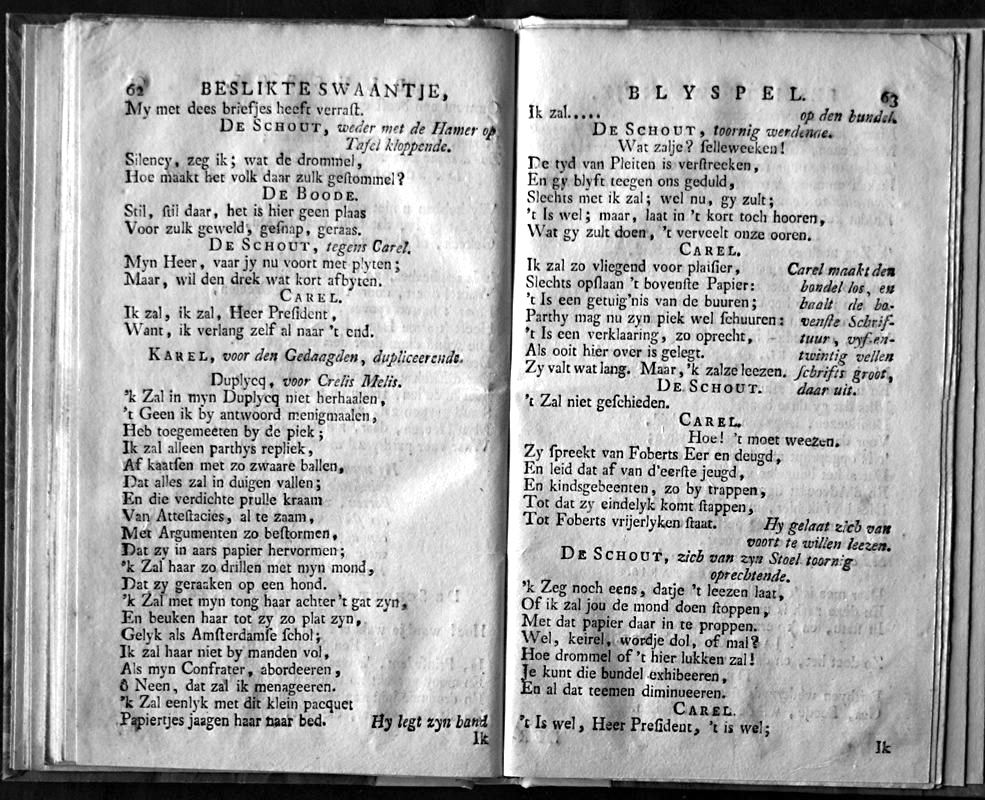 62 BESLIKTE SWAANTJE,
My met dees briefjes heeft verrast.
DE SCHOUT, weder met de Hamer op
Tafel kloppende.
Silency, zeg ik; wat de drommel,
Hoe maakt het volk daar zulk gestommel?
DE BOODE.
Stil, stil daar, het is hier geen plaas
Voor zulk geweld, gesnap, geraas.
DE SCHOUT, tegens Carel.
Myn Heer, vaar jy nu voort met plyten;
Maar, wil den drek wat kort afbyten.
CAREL.
Ik zal, ik zal, Heer President,
Want, ik verlang zelf al naar 't end.
KAREL, voor den Gedaagden, dupliceerende.
Duplycq, voor Crelis Melis.
'k Zal in myn Duplycq niet herhaalen,
't Geen ik by antwoord menigmaalen,
Heb toegemeeten by de piek;
Ik zal alleen parthys repliek,
Af kaatsen met zo zwaare ballen,
Dat alles zal in duigen vallen;
En die verdichte prulle kraam
Van Attestacies, al te zaam,
Met Argumenten zo bestormen,
Dat zy in aars papier hervormen;
'k Zal haar zo drillen met myn mond,
Dat zy geraaken op een hond.
'k Zal met myn tong haar achter 't gat zyn,
En beuken haar tot zy zo plat zyn,
Gelyk als Amsterdamse schol;
Ik zal haar niet by manden vol,
Als myn Confrater, abordeeren,
ô Neen, dat zal ik menageeren.
'k Zal eenlyk met dit klein pacquet
Papiertjes jaagen haar naar bed. Hy legt zyn band
Ik
BLYSPEL. 63
Ik zal..... op den bundel.
DE SCHOUT, toornig werdende.
Wat zalje? selleweeken!
De tyd van Pleiten is verstreeken,
En gy blyft teegen ons geduld,
Slechts met ik zal; wel nu, gy zult;
't Is wel; maar, laat in 't kort toch hooren,
Wat gy zult doen, 't verveelt onze ooren.
CAREL.
Ik zal zo vliegend voor plaisier, Carel maakt den
Slechts opslaan 't bovenste Papier: bondel los, en
't Is een getuig'nis van de buuren; haalt de bo-
Parthy mag nu zyn piek wel schuuren: venste Schrif-
't Is een verklaaring, zo oprecht, tuur, vyf-en-
Als ooit hier over is gelegt. twintig vellen
Zy valt wat lang. Maar, 'k zal ze leezen. schrifts groot,
DE SCHOUT. daar uit.
't Zal niet geschieden.
CAREL.
Hoe! 't moet weezen.
Zy spreekt van Foberts Eer en deugd,
En leid dat af van d'eerste jeugd,
En kindsgebeenten, zo by trappen,
Tot dat zy eindelyk komt stappen,
Tot Foberts vrijerlyken staat. Hy gelaat zich van
voort te willen leezen.
DE SCHOUT, zich van zyn Stoel toornig
oprechtende.
'k Zeg noch eens, datje 't leezen laat,
Of ik zal jou de mond doen stoppen,
Met dat papier daar in te proppen.
Wel, keirel, wordje dol, of mal?
Hoe drommel of 't hier lukken zal!
Je kunt die bundel exhibeeren,
En al dat teemen diminueeren.
CAREL.
't Is wel, Heer President, 't is wel;
Ik